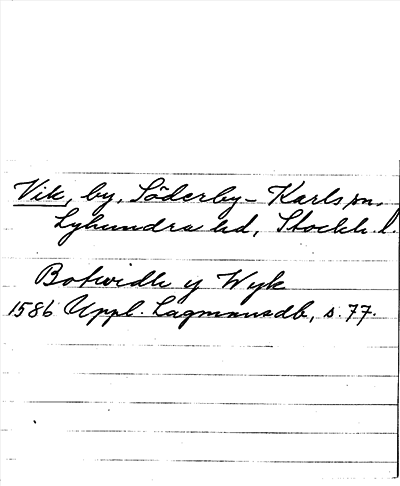 Vik, by, Söderby-Karls sn.
Lyhundra hd, Stockh. l.
Botwidh y Wyk
1586 Uppl. Lagmansdb, s. 77.